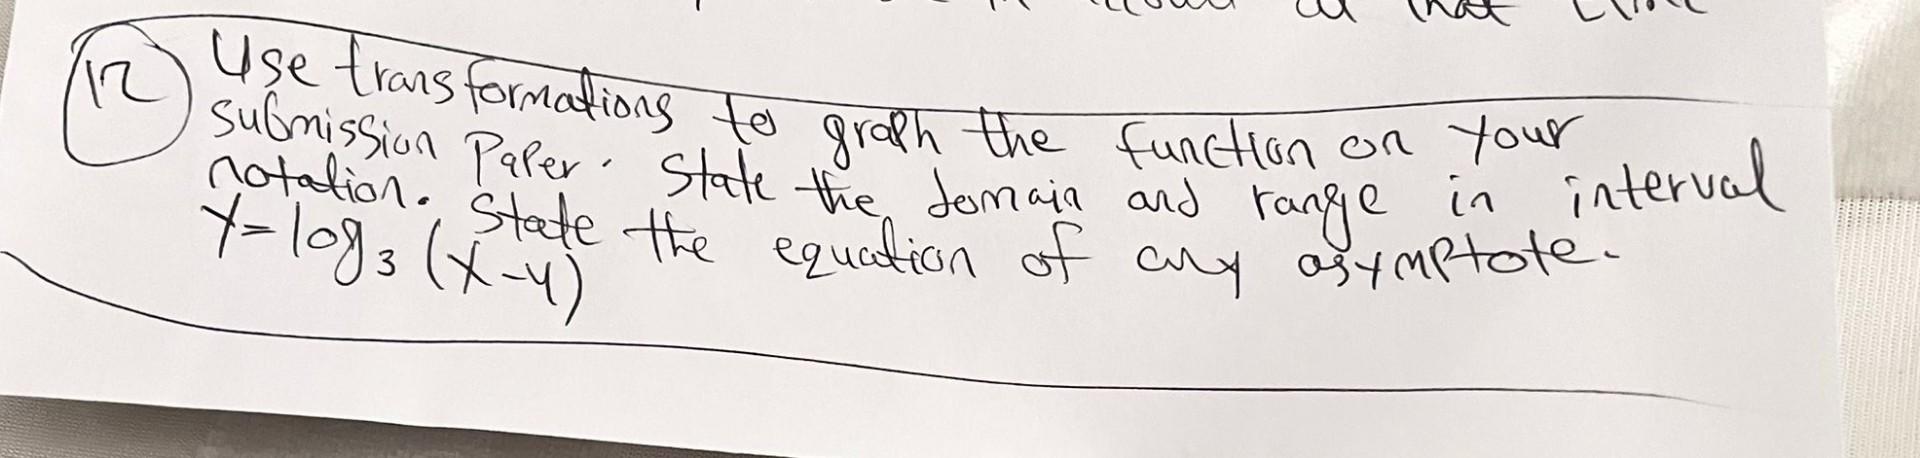 12 Use transformations to graph the function on your
submission Paper. State the domain and range in interval
notation. State the equation of any asymptote.
Y=log₃(x-4)